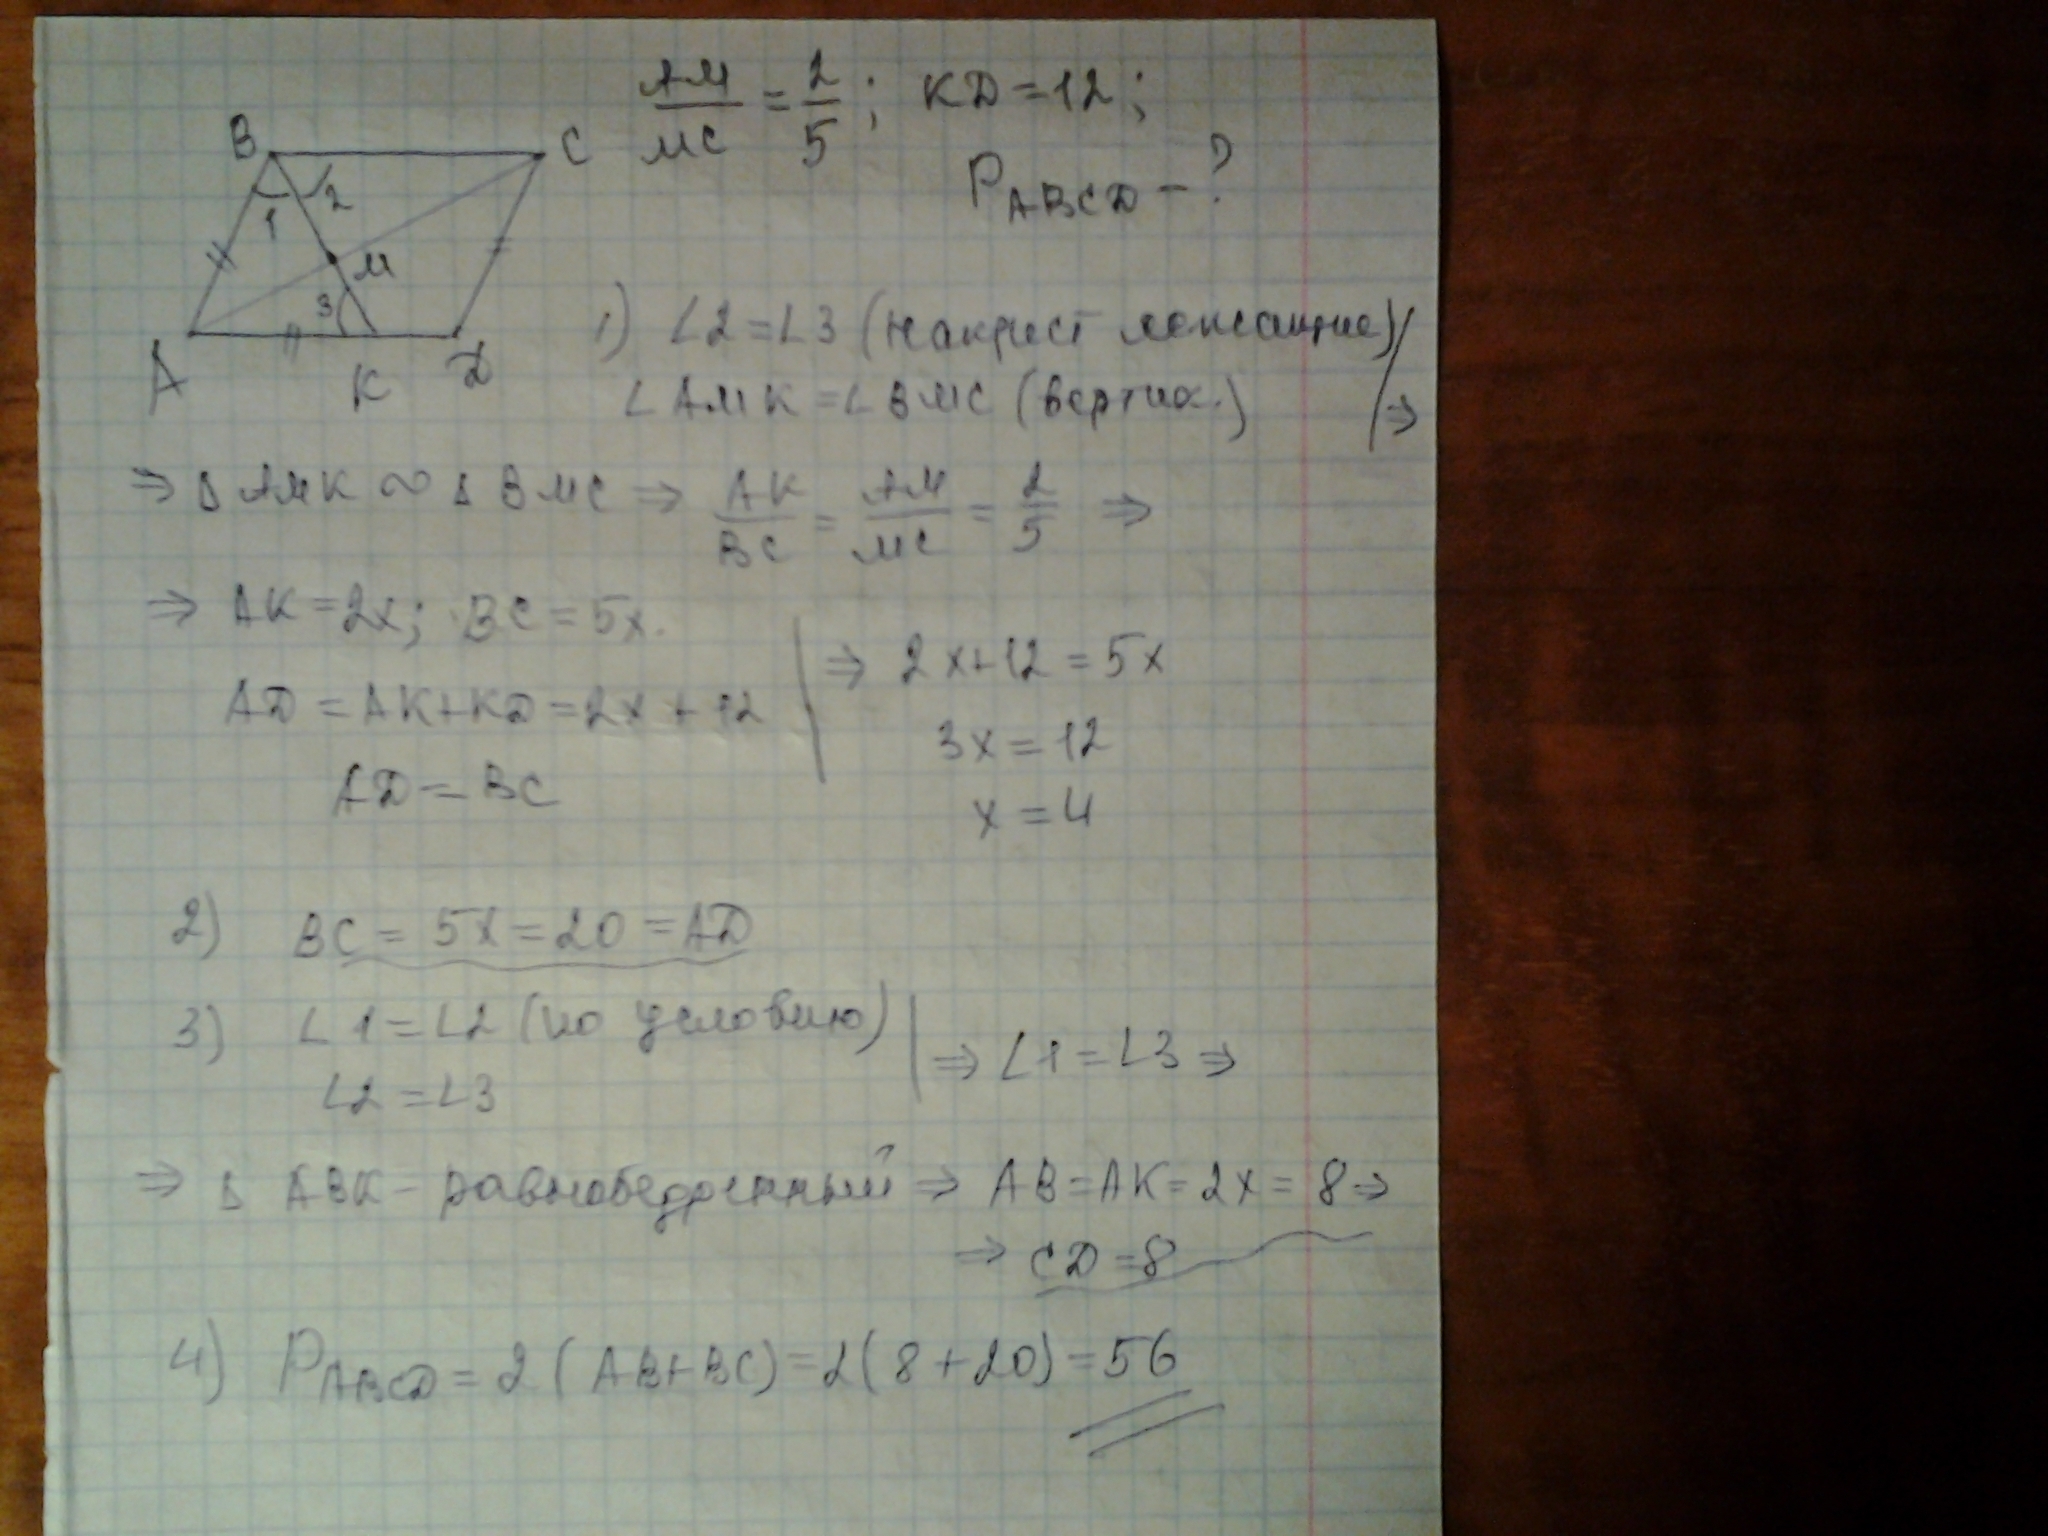 AM/MC = 2/5; KD = 12;
P ABCD - ?
B C
1 2
M
3
A K D
1) ∠2 = ∠3 (накрест лежащие)
∠AMK = ∠BMC (вертик.) ⇒
⇒ Δ AMK ∾ Δ BMC ⇒ AK/BC = AM/MC = 2/5 ⇒
⇒ AK = 2x; BC = 5x.
AD = AK + KD = 2x + 12
AD = BC
⇒ 2x + 12 = 5x
3x = 12
x = 4
2) BC = 5x = 20 = AD
3) ∠1 = ∠2 (по условию)
∠2 = ∠3
⇒ ∠1 = ∠3 ⇒
⇒ Δ ABK - равнобедренный ⇒ AB = AK = 2x = 8 ⇒
⇒ CD = 8
4) P ABCD = 2(AB + BC) = 2(8 + 20) = 56